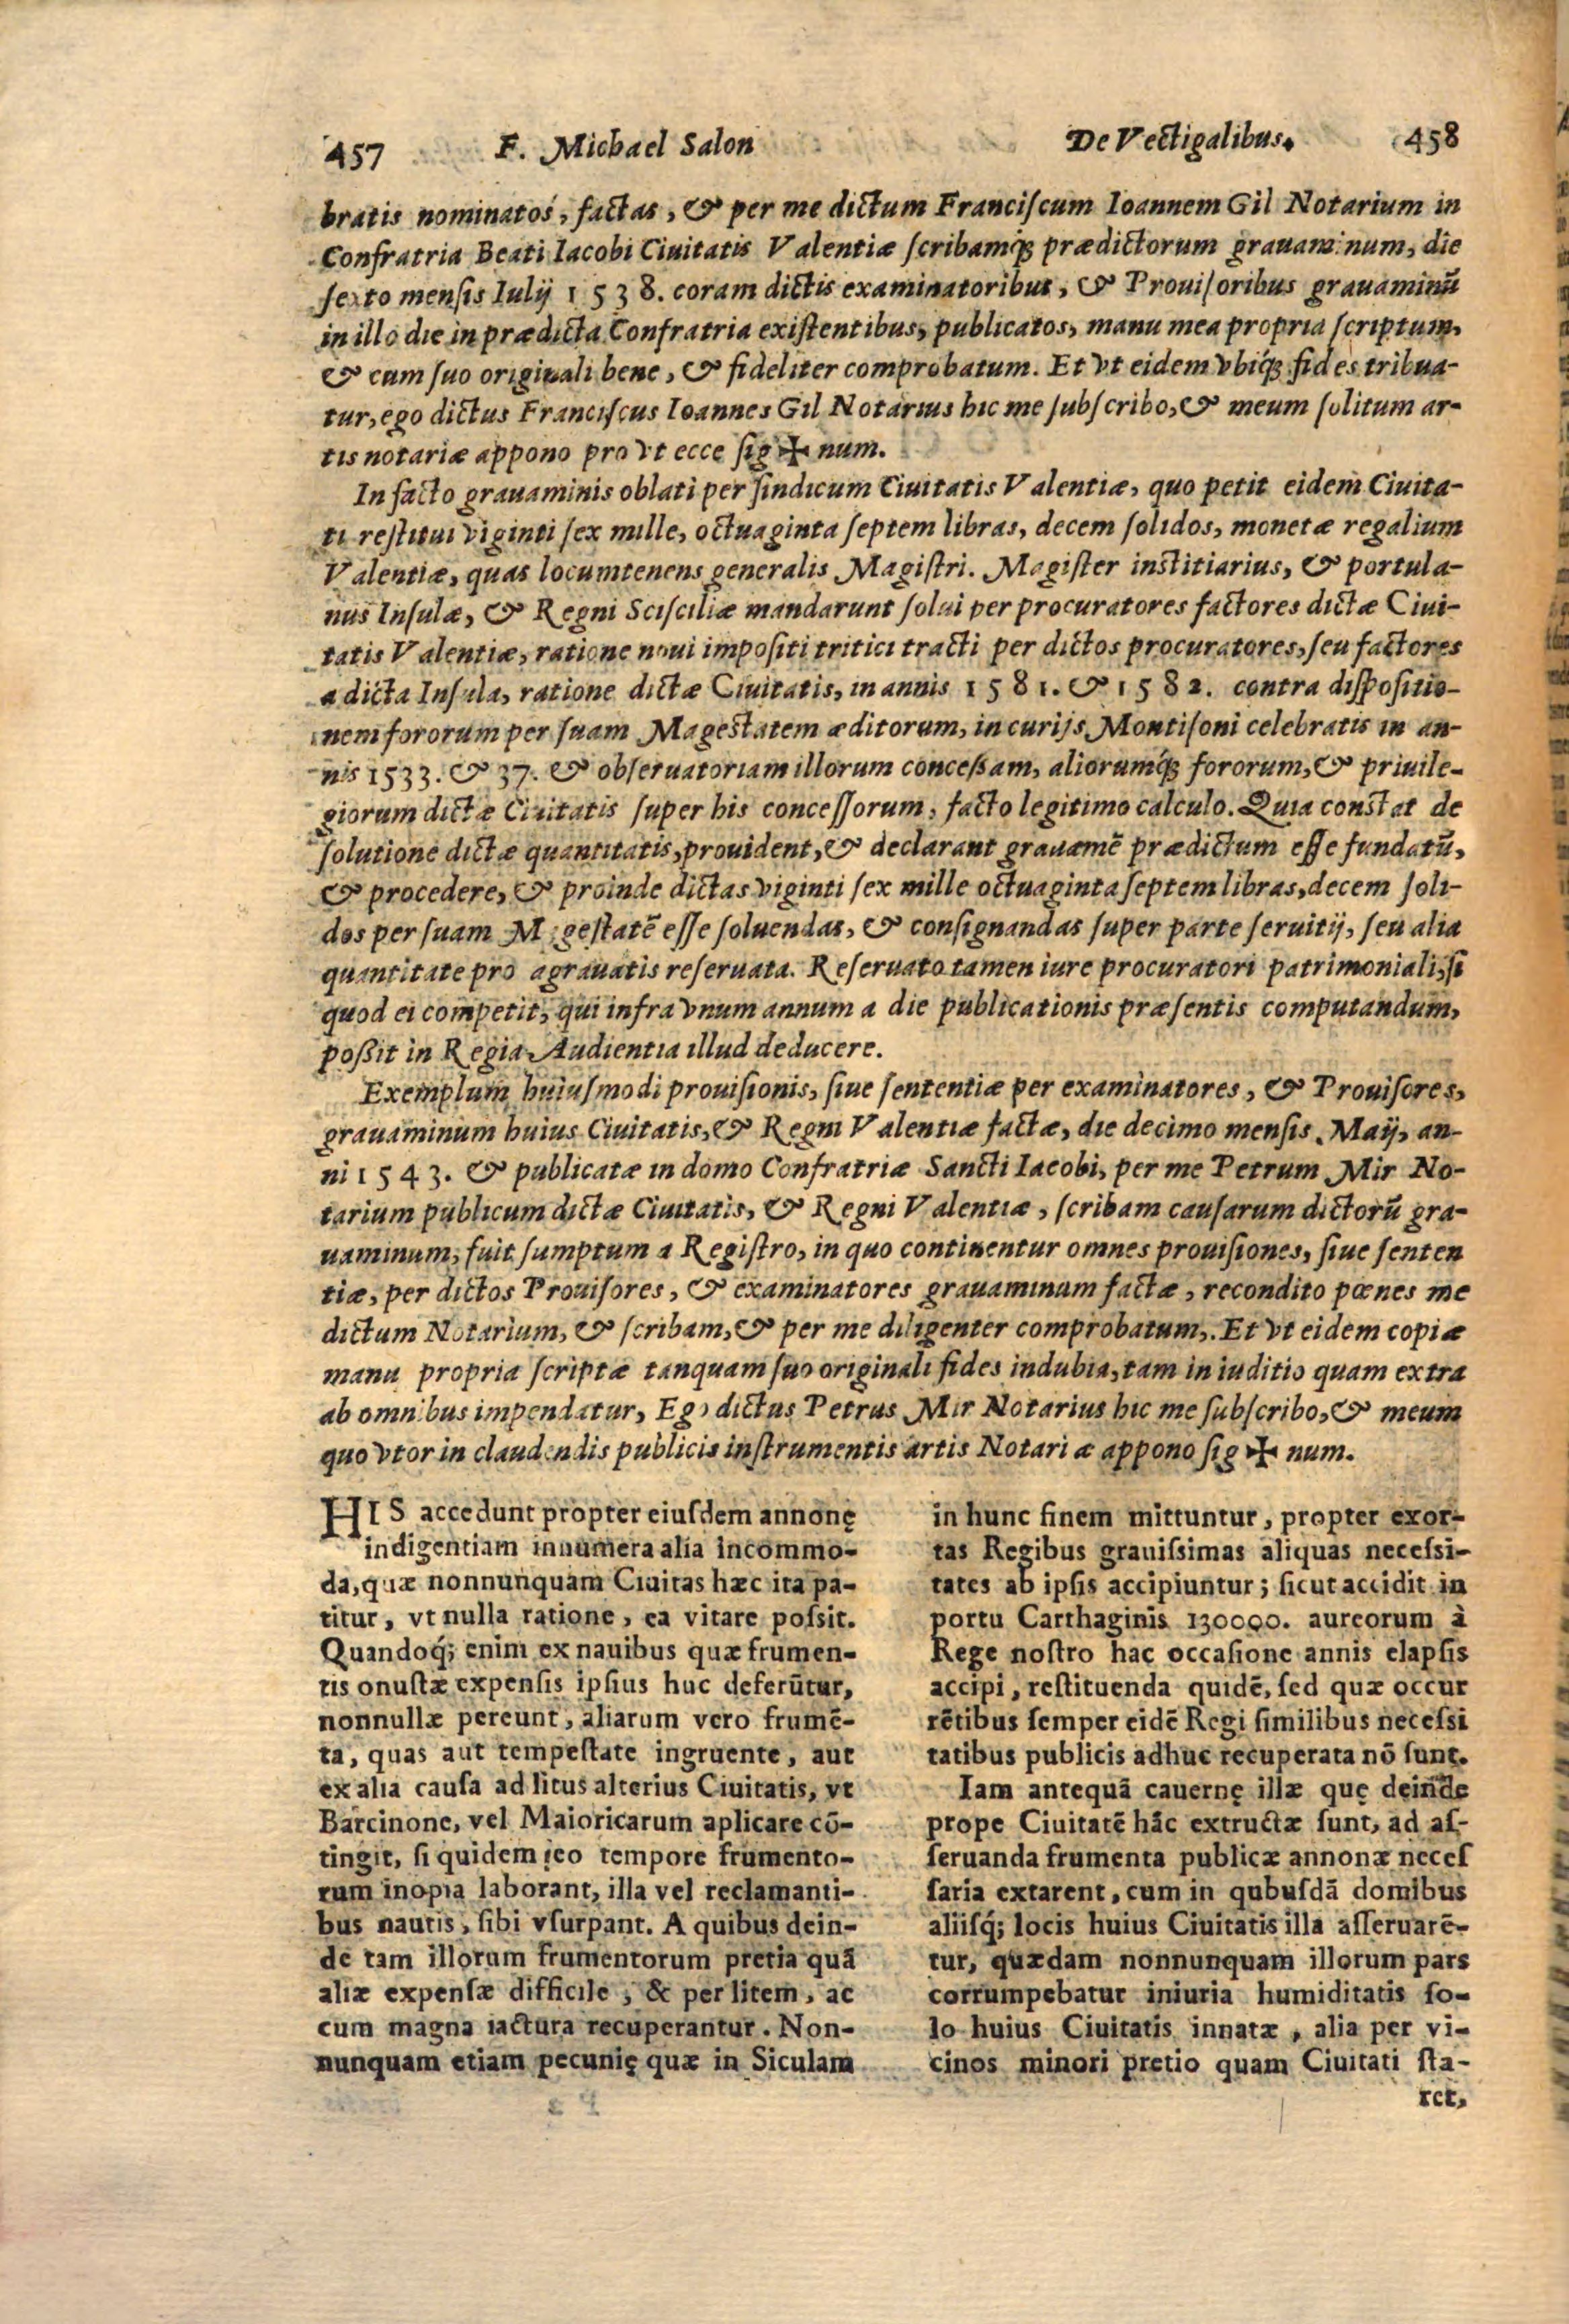 457 F. Michael Salon De Vectigalibus. 458
bratis nominatos, factas, & per me dictum Franciſcum Ioannem Gil Notarium in
Confratria Beati Iacobi Ciuitatis Valentiæ ſcribamq́; prædictorum grauaminum, die
ſexto menſis Iulij 1538. coram dictis examinatoribus, & Prouiſoribus grauaminū
in illo die in prædicta Confratria exiſtentibus, publicatos, manu mea propria ſcriptum,
& cum ſuo originali bene, & fideliter comprobatum. Et vt eidem vbiq́; fides tribua-
tur, ego dictus Franciſcus Ioannes Gil Notarius hic me ſubſcribo, & meum ſolitum ar-
tis notariæ appono pro vt ecce ſig ✠ num.
In facto grauaminis oblati per ſindicum Ciuitatis Valentiæ, quo petit eidem Ciuita-
ti reſtitui viginti ſex mille, octuaginta ſeptem libras, decem ſolidos, monetæ regalium
Valentiæ, quas locumtenens generalis Magiſtri. Magiſter inſtitiarius, & portula-
nus Inſulæ, & Regni Sciſciliæ mandarunt ſolui per procuratores factores dictæ Ciui-
tatis Valentiæ, ratione noui impoſiti tritici tracti per dictos procuratores, ſeu factores
a dicta Inſula, ratione dictæ Ciuitatis, in annis 1581. & 1582. contra diſpoſitio-
nem fororum per ſuam Mageſtatem æditorum, in curijs Montiſoni celebratis in an-
nis 1533. & 37. & obſeruatoriam illorum conceſſam, aliorumq́; fororum, & priuile-
giorum dictæ Ciuitatis ſuper his conceſſorum, facto legitimo calculo. Quia conſtat de
ſolutione dictæ quantitatis, prouident, & declarant grauamē prædictum eſſe fundatū,
& procedere, & proinde dictas viginti ſex mille octuaginta ſeptem libras, decem ſoli-
dos per ſuam Mageſtatē eſſe ſoluendas, & conſignandas ſuper parte ſeruitij, ſeu alia
quantitate pro agrauatis reſeruata. Reſeruato tamen iure procuratori patrimoniali, ſi
quod ei competit, qui infra vnum annum a die publicationis præſentis computandum,
poßit in Regia Audientia illud deducere.
Exemplum huiuſmodi prouiſionis, ſiue ſententiæ per examinatores, & Prouiſores,
grauaminum huius Ciuitatis, & Regni Valentiæ factæ, die decimo menſis Maij, an-
ni 1543. & publicatæ in domo Confratriæ Sancti Iacobi, per me Petrum Mir No-
tarium publicum dictæ Ciuitatis, & Regni Valentiæ, ſcribam cauſarum dictorū gra-
uaminum, fuit ſumptum a Regiſtro, in quo continentur omnes prouiſiones, ſiue ſenten
tiæ, per dictos Prouiſores, & examinatores grauaminum factæ, recondito pœnes me
dictum Notarium, & ſcribam, & per me diligenter comprobatum,. Et vt eidem copiæ
manu propria ſcriptæ tanquam ſuo originali fides indubia, tam in iuditio quam extra
ab omnibus impendatur, Ego dictus Petrus Mir Notarius hic me ſubſcribo, & meum
quo vtor in claudendis publicis inſtrumentis artis Notariæ appono ſig ✠ num.
HIS accedunt propter eiuſdem annonę
indigentiam innumera alia incommo-
da, quæ nonnunquam Ciuitas hæc ita pa-
titur, vt nulla ratione, ea vitare poſsit.
Quandoq́; enim ex nauibus quæ frumen-
tis onuſtæ expenſis ipſius huc deferūtur,
nonnullæ pereunt, aliarum vero frumē-
ta, quas aut tempeſtate ingruente, aut
ex alia cauſa ad litus alterius Ciuitatis, vt
Barcinone, vel Maioricarum aplicare cō-
tingit, ſi quidem eo tempore frumento-
rum inopia laborant, illa vel reclamanti-
bus nautis, ſibi vſurpant. A quibus dein-
de tam illorum frumentorum pretia quā
aliæ expenſæ difficile, & per litem, ac
cum magna iactura recuperantur. Non-
nunquam etiam pecunię quæ in Siculam
in hunc finem mittuntur, propter exor-
tas Regibus grauiſsimas aliquas neceſsi-
tates ab ipſis accipiuntur; ſicut accidit in
portu Carthaginis 130000. aureorum à
Rege noſtro hac occaſione annis elapſis
accipi, reſtituenda quidē, ſed quæ occur
rētibus ſemper eidē Regi ſimilibus neceſsi
tatibus publicis adhuc recuperata nō ſunt.
Iam antequā cauernę illæ quę deinde
prope Ciuitatē hāc extructæ ſunt, ad aſ-
ſeruanda frumenta publicæ annonæ neceſ
ſaria extarent, cum in qubuſdā domibus
aliiſq́; locis huius Ciuitatis illa aſſeruarē-
tur, quædam nonnunquam illorum pars
corrumpebatur iniuria humiditatis ſo-
lo huius Ciuitatis innatæ, alia per vi-
cinos minori pretio quam Ciuitati ſta-
ret,